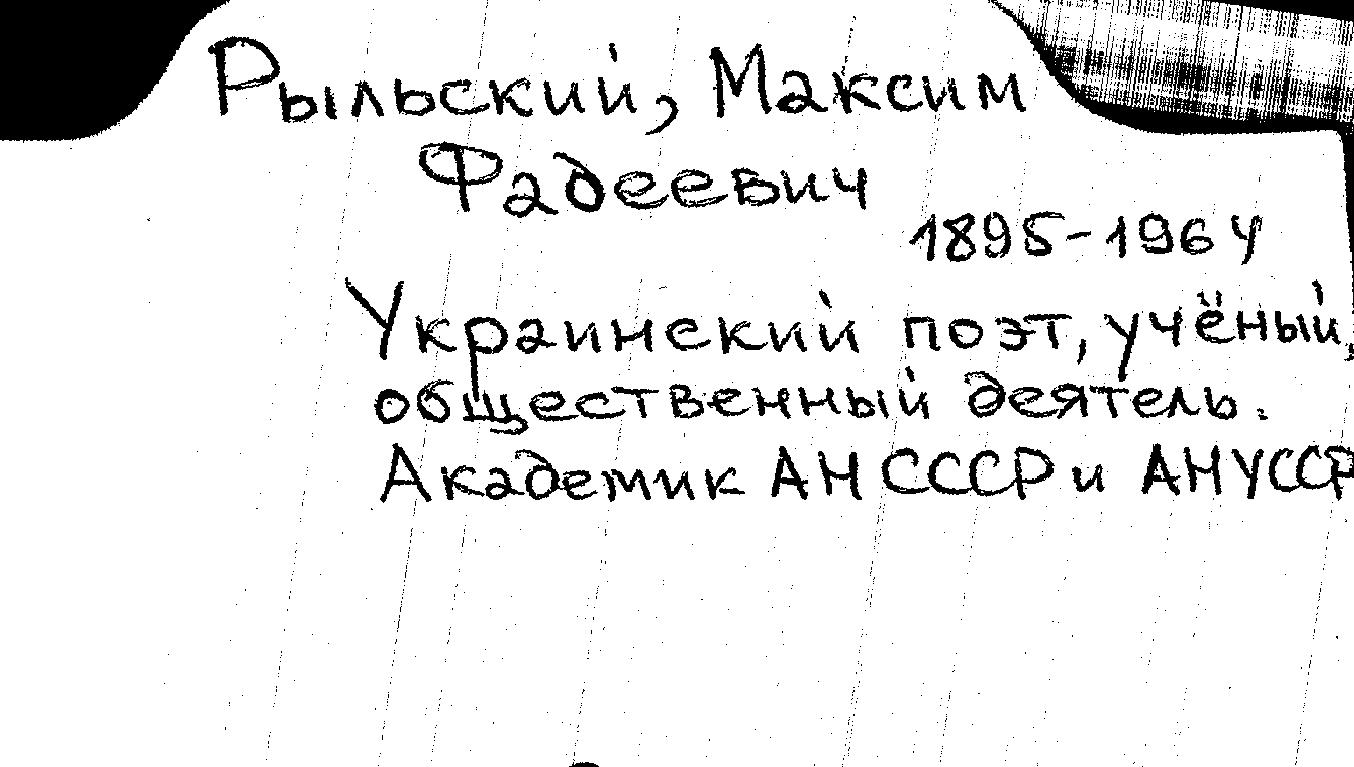 Рыльский, Максим
Фадеевич
1895-1964
Украинский поэт, учёный,
общественный деятель.
Академик АН СССР и АН УССР